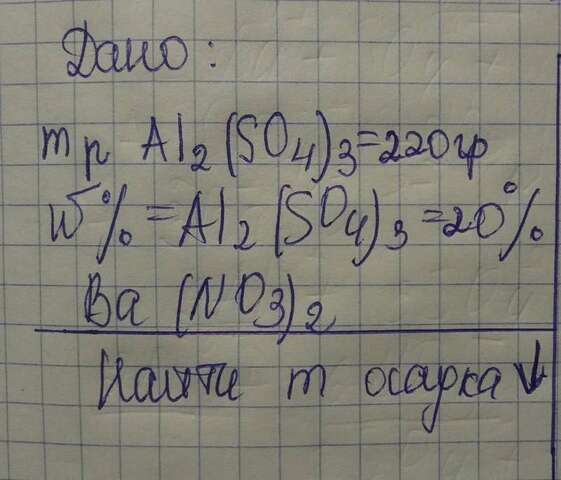 Дано:
mр Al2(SO4)3=220гр
W%=Al2(SO4)3=20%
Ba(NO3)2
Найти m осадка↓